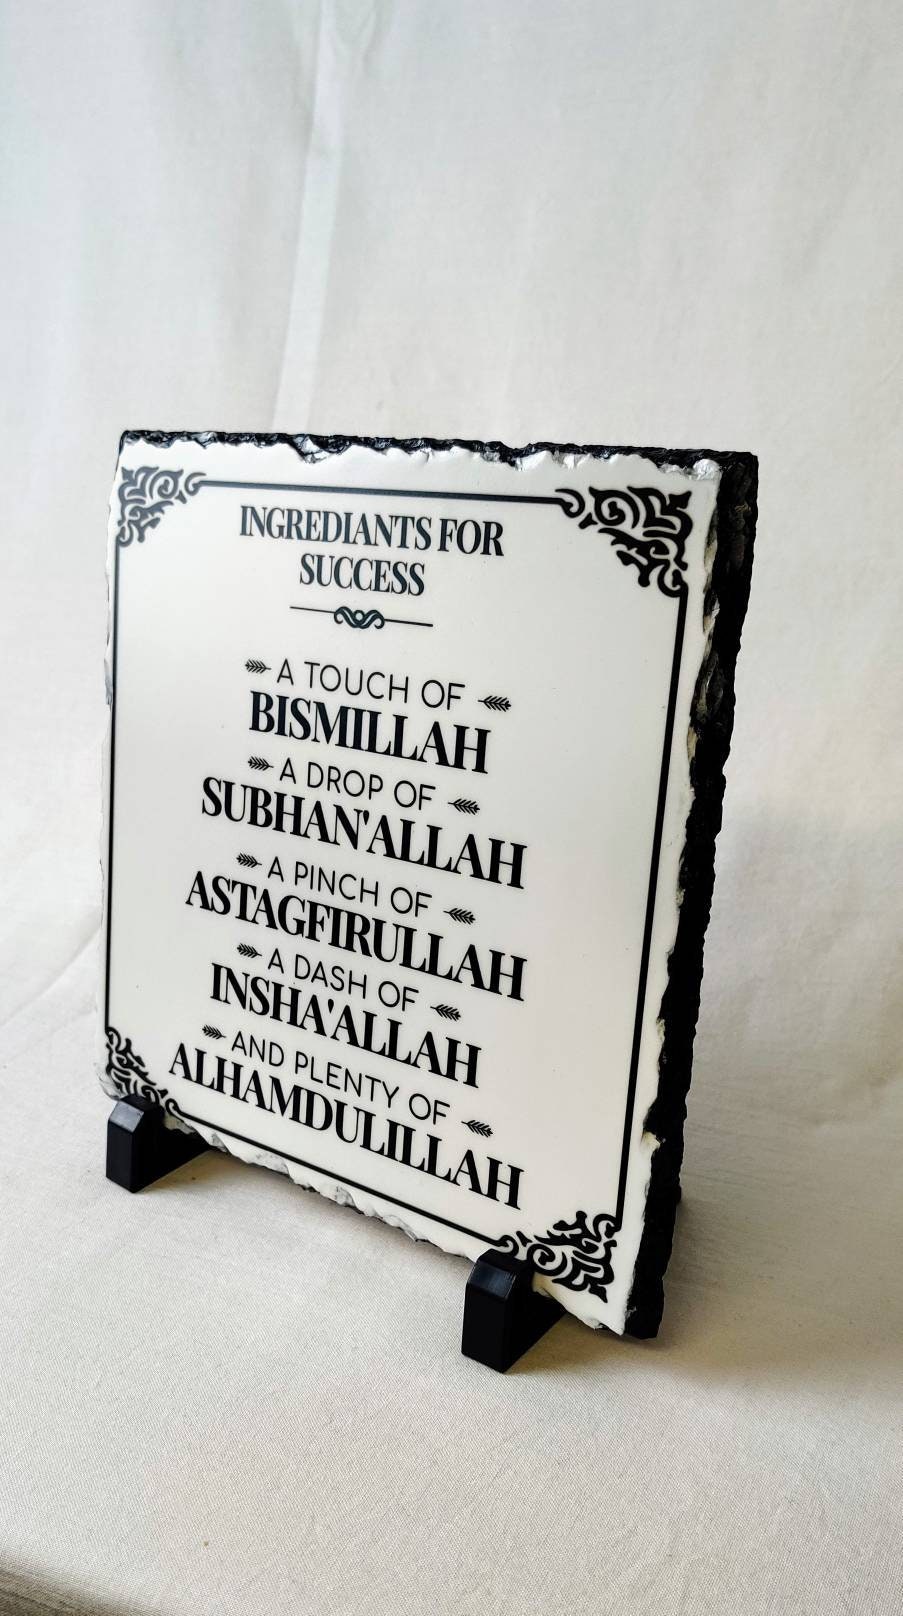 INGREDIANTS FOR
SUCCESS
A TOUCH OF
BISMILLAH
A DROP OF
SUBHAN'ALLAH
A PINCH OF
ASTAGFIRULLAH
A DASH OF
INSHA'ALLAH
AND PLENTY OF
ALHAMDULILLAH